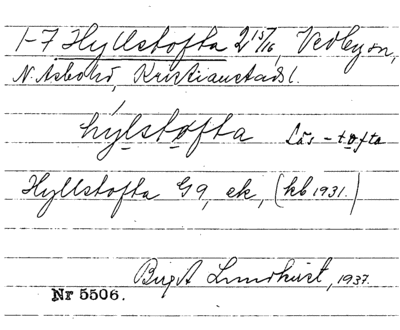 1-7 Hyllstofta 2 15/16, Vedbysn,
N. Åsbohd, Kristianstadsl.
hylstofta Läs -tofta
Hyllstofta G9, ek, (kb 1931.)
Birgit Lundkvist, 1937.
Nr 5506.